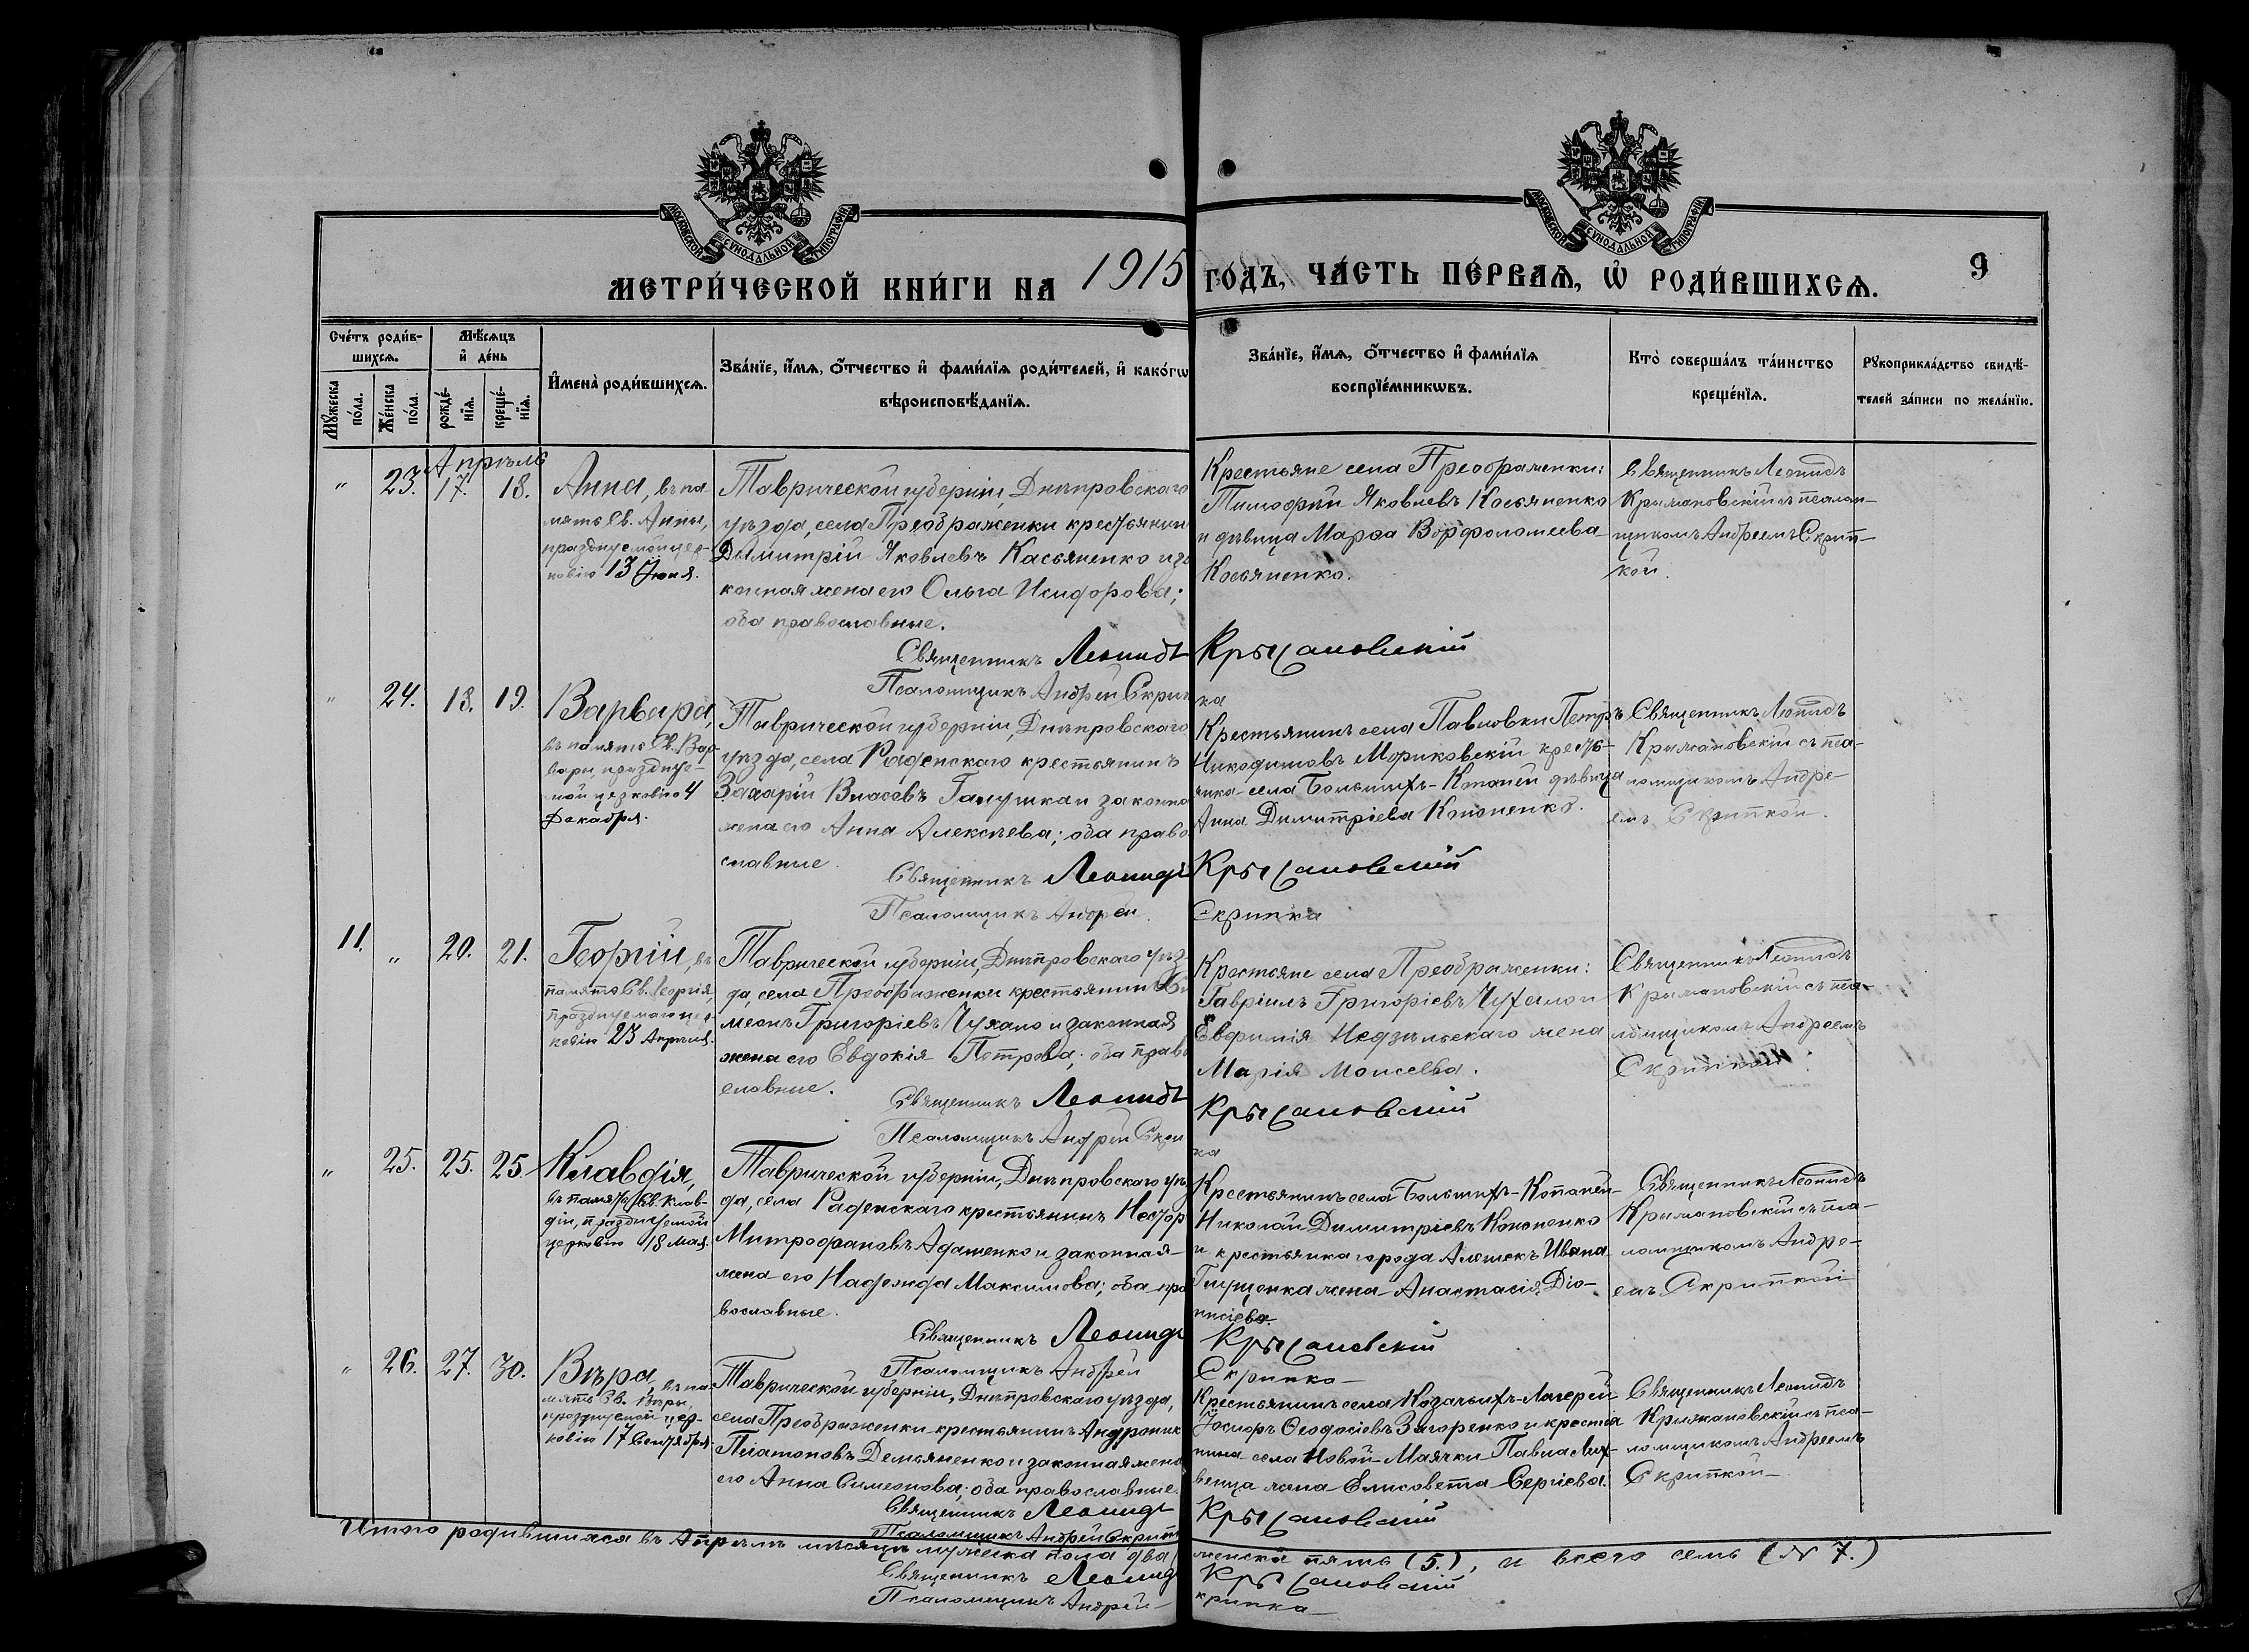 МОСКОВСКОЙ СѴНОДАЛЬНОЙ ТИПОГРАФІИ
МОСКОВСКОЙ СѴНОДАЛЬНОЙ ТИПОГРАФІИ
МЕТРИ́ЧЕСКОЙ КНИ́ГИ НА 1915 ГОДЪ, ЧА́СТЬ ПЕ́РВАѦ, Ѡ҆ РОДИ́ВШИХСѦ.
9
Сче́тъ роди́в-
шихсѧ.
Мꙋ́жеска по́ла.
Же́нска по́ла.
Мѣ́сѧцъ
и҆ де́нь
рожде́-нїѧ.
креще́-нїѧ.
И҆мена̀ роди́вшихсѧ.
Зва́нїе, и҆́мѧ, ѻ҆́тчество и҆ фами́лїѧ роди́телей, и҆ како́гѡ
вѣроисповѣ́данїѧ.
Зва́нїе, и҆́мѧ, ѻ҆́тчество и҆ фами́лїѧ
воспрїе́мникѡвъ.
Кто̀ соверша́лъ та́инство
креще́нїѧ.
Рꙋкоприкла́дство свидѣ́-
телей за́писи по жела́нїю.
Апрѣль
" 23. 17. 18.
Анна, въ па
мять Св. Анны,
празднуемой цер-
ковію 13 Іюня.
Таврической губерніи, Днѣпровскаго
уѣзда, села Преображенки крестьянин
Димитрій Яковлевъ Касьяненко и за
конная жена его Ольга Исидорова;
оба православные.
Священникъ Леонидъ Крыжановскій
Псаломщикъ Андрей Скрип
ка
Крестьяне села Преображенки:
Тимофей Яковлевъ Косьяненко
и дѣвица Марѳа Ворфоломеева
Косьяненко.
Священникъ Леонидъ
Крыжановскій съ псалом-
щикомъ Андреемъ Скрип-
кой.
" 24. 18. 19.
Варвара,
въ память Св. Вар-
вары, празднуе-
мой церковію 4
Декабря.
Таврической губерніи, Днѣпровскаго
уѣзда, села Раденскаго крестьянинъ
Захарій Власовъ Галушка и законна
жена его Анна Алексѣева; оба право
славные.
Священникъ Леонидъ Крыжановскій
Псаломщикъ Андрей Скрипка
Крестьянинъ села Павловки Петръ
Никодимовъ Мориковскій крестъ-
янка села Большихъ-Копаней дѣвица
Анна Димитріева Кононенко.
Священникъ Леонидъ
Крыжановскій съ пса-
ломщикомъ Андре-
емъ Скрипкой.
11. " 20. 21.
Георгій, въ
память Св. Георгія,
празднуемаго цер-
ковію 23 Апрѣля.
Таврической губерніи, Днѣпровскаго уѣз
да, села Преображенки крестьянинъ Си
меонъ Григоріевъ Чухало и законная
жена его Евдокія Петрова; оба право
славные.
Священникъ Леонидъ Крыжановскій
Псаломщикъ Андрей Скрип
ка
Крестьяне села Преображенки:
Гавріилъ Григоріевъ Чухало и
Евфимія Недзѣльскаго жена
Марія Моисеева.
Священникъ Леонидъ
Крыжановскій съ пса-
ломщикомъ Андреемъ
Скрипкой.
" 25. 25. 25.
Клавдія,
въ память Св. Клав-
діи, празднуемой
церковію 18 Мая.
Таврической губерніи, Днѣпровскаго уѣз
да, села Раденскаго крестьянинъ Нестор
Митрофановъ Адаменко и законная
жена его Надежда Максимова; оба пра
вославные.
Священникъ Леонидъ Крыжановскій
Псаломщикъ Андрей Скрипка
Крестьянинъ села Большихъ-Копаней
Николай Димитріевъ Кононенко
и крестьянка города Алешекъ Ивана
Глущенка жена Анастасія Діо-
нисіева.
Священникъ Леонидъ
Крыжановскій съ пса-
ломщикомъ Андре-
емъ Скрипкой
" 26. 27. 30.
Вѣра, въ па-
мять Св. Вѣры,
празднуемой цер-
ковію 17 Сентября.
Таврической губерніи, Днѣпровскаго уѣзда,
села Преображенки крестьянинъ Андроник
Платоновъ Демьяненко и законная жена
его Анна Симеонова; оба православные.
Священникъ Леонидъ Крыжановскій
Псаломщикъ Андрей Скрипк
Крестьянинъ села Козачьихъ-Лагерей
Іосифъ Ѳеодосіевъ Загоренко и крестья
нина села Новой-Маячки Павла Лих-
венца жена Елисовета Сергіева.
Священникъ Леонидъ
Крыжановскій съ пса-
ломщикомъ Андреемъ
Скрипкой
Итого родившихся въ Апрѣлѣ мѣсяцѣ мужеска пола два ( женска пять (5.), и всего семь (№ 7.)
Священникъ Леонид Крыжановскій
Псаломщикъ Андрей крипка